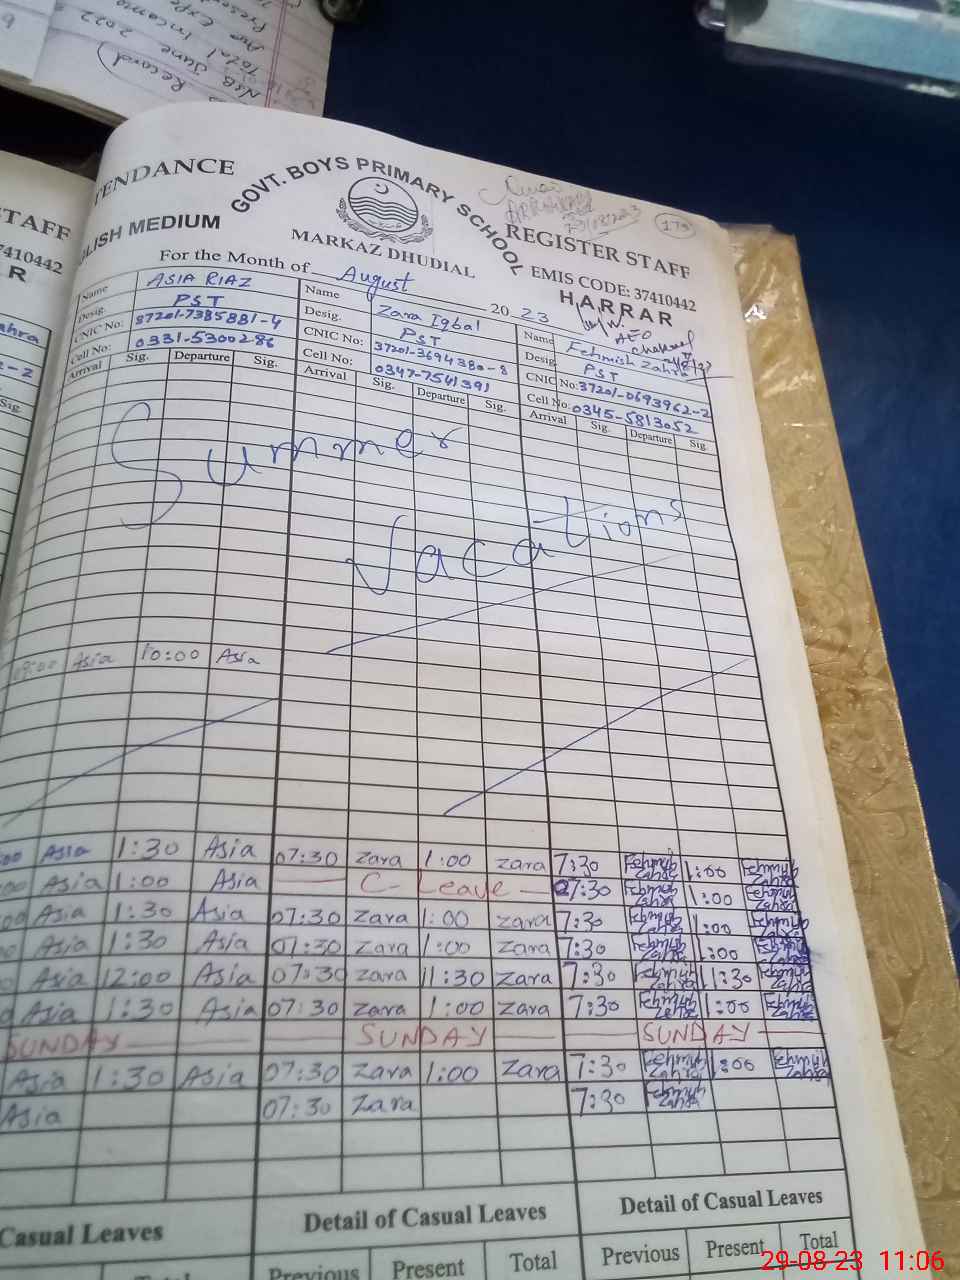 Record
NSB June 2022
Total Income
TENDANCE
GOVT. BOYS PRIMARY SCHOOL
REGISTER STAFF
LISH MEDIUM
MARKAZ DHUDIAL
EMIS CODE: 37410442
HARRAR
For the Month of August 2023
AEO
STAFF
7410442
A R
Name ASIA RIAZ Name Zara Iqbal Name Fehmish Zahra
Desig. PST Desig. PST Desig PST
CNIC No: 37201-7385881-4 CNIC No: 37201-3694380-8 CNIC No: 37201-0693962-2
Cell No: 0331-5300286 Cell No: 0347-7541391 Cell No: 0345-5813052
Arrival Sig. Departure Sig. Arrival Sig. Departure Sig. Arrival Sig. Departure Sig.
Summer
Vacations
09:00 Asia 10:00 Asia
00 Asia 1:30 Asia 07:30 Zara 1:00 Zara 7:30 1:00
00 Asia 1:00 Asia C-Leave 07:30 1:00
00 Asia 1:30 Asia 07:30 Zara 1:00 Zara 7:30 1:00
0 Asia 1:30 Asia 07:30 Zara 1:00 Zara 7:30 1:00
0 Asia 12:00 Asia 07:30 Zara 11:30 Zara 7:30 11:30
0 Asia 1:30 Asia 07:30 Zara 1:00 Zara 7:30 1:00
SUNDAY SUNDAY SUNDAY
Asia 1:30 Asia 07:30 Zara 1:00 Zara 7:30 1:00
Asia 07:30 Zara 7:30
Casual Leaves Detail of Casual Leaves Detail of Casual Leaves
Total Previous Present Total Previous Present Total
29-08-23 11:06